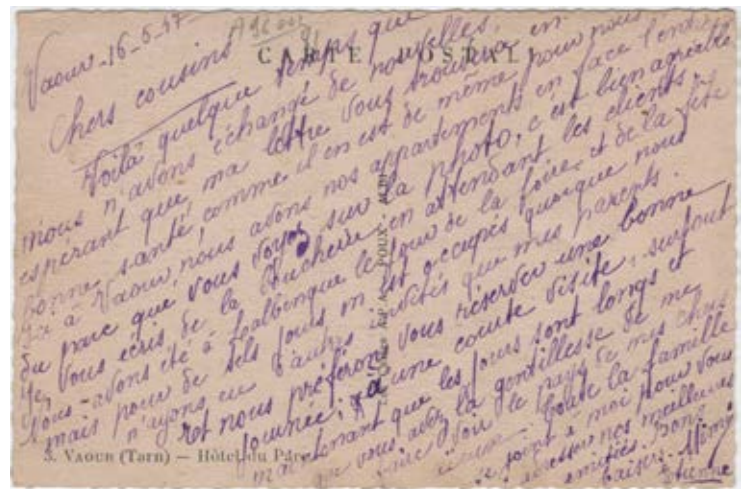 Vaour-16-5-47
CARTE POSTALE
Chers cousins
Voilà quelque temps que
nous n'avons échangé de nouvelles,
espérant que ma lettre vous trouvera en
bonne santé, comme il en est de même pour nous
à Vaour, nous avons nos appartements en face l'entrée
du parc que vous voyez sur la photo, c'est bien agréable
Je vous écris de la boucherie, en attendant les clients.
Nous avons été à Lalbenque le jour de la foire, et de la fête
mais pour de tels jours on est occupés quoique nous
n'ayons eu d'autres invités que mes parents.
et nous préférons vous réserver une bonne
journée, à une courte visite, surtout
maintenant que les jours sont longs et
que vous avez la gentillesse de me
faire voir le pays de mes chers
Toute la famille
se joint à moi pour vous
adresser nos meilleures
amitiés. Bons
baisers. Mimi
Etienne
3. VAOUR (Tarn) — Hôtel du Parc